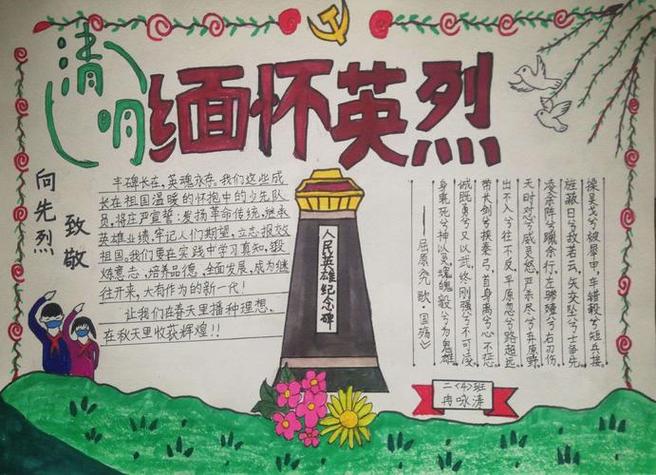 清明
缅怀英烈
向先烈
致敬
丰碑长在,英魂永存,我们这些成
长在祖国温暖的怀抱中的少先队
员,将庄严宣誓:发扬革命传统,继承
英雄业绩,牢记人们期望,立志报效
祖国,我们要在实践中学习真知,锻
炼意志,培养品德,全面发展,成为继
往开来,大有作为的新一代!
让我们在春天里播种理想,
在秋天里收获辉煌!!
人民英雄纪念碑
操吴戈兮被犀甲,车错毂兮短兵接,
旌蔽日兮敌若云,矢交坠兮士争先,
凌余阵兮躐余行,左骖殪兮右刃伤,
天时怼兮威灵怒,严杀尽兮弃原野,
出不入兮往不反,平原忽兮路超远,
带长剑兮挟秦弓,首身离兮心不惩
诚既勇兮又以武,终刚强兮不可凌,
身既死兮神以灵,魂魄毅兮为鬼雄
——屈原《九歌·国殇》
二(4)班
冉咏涛